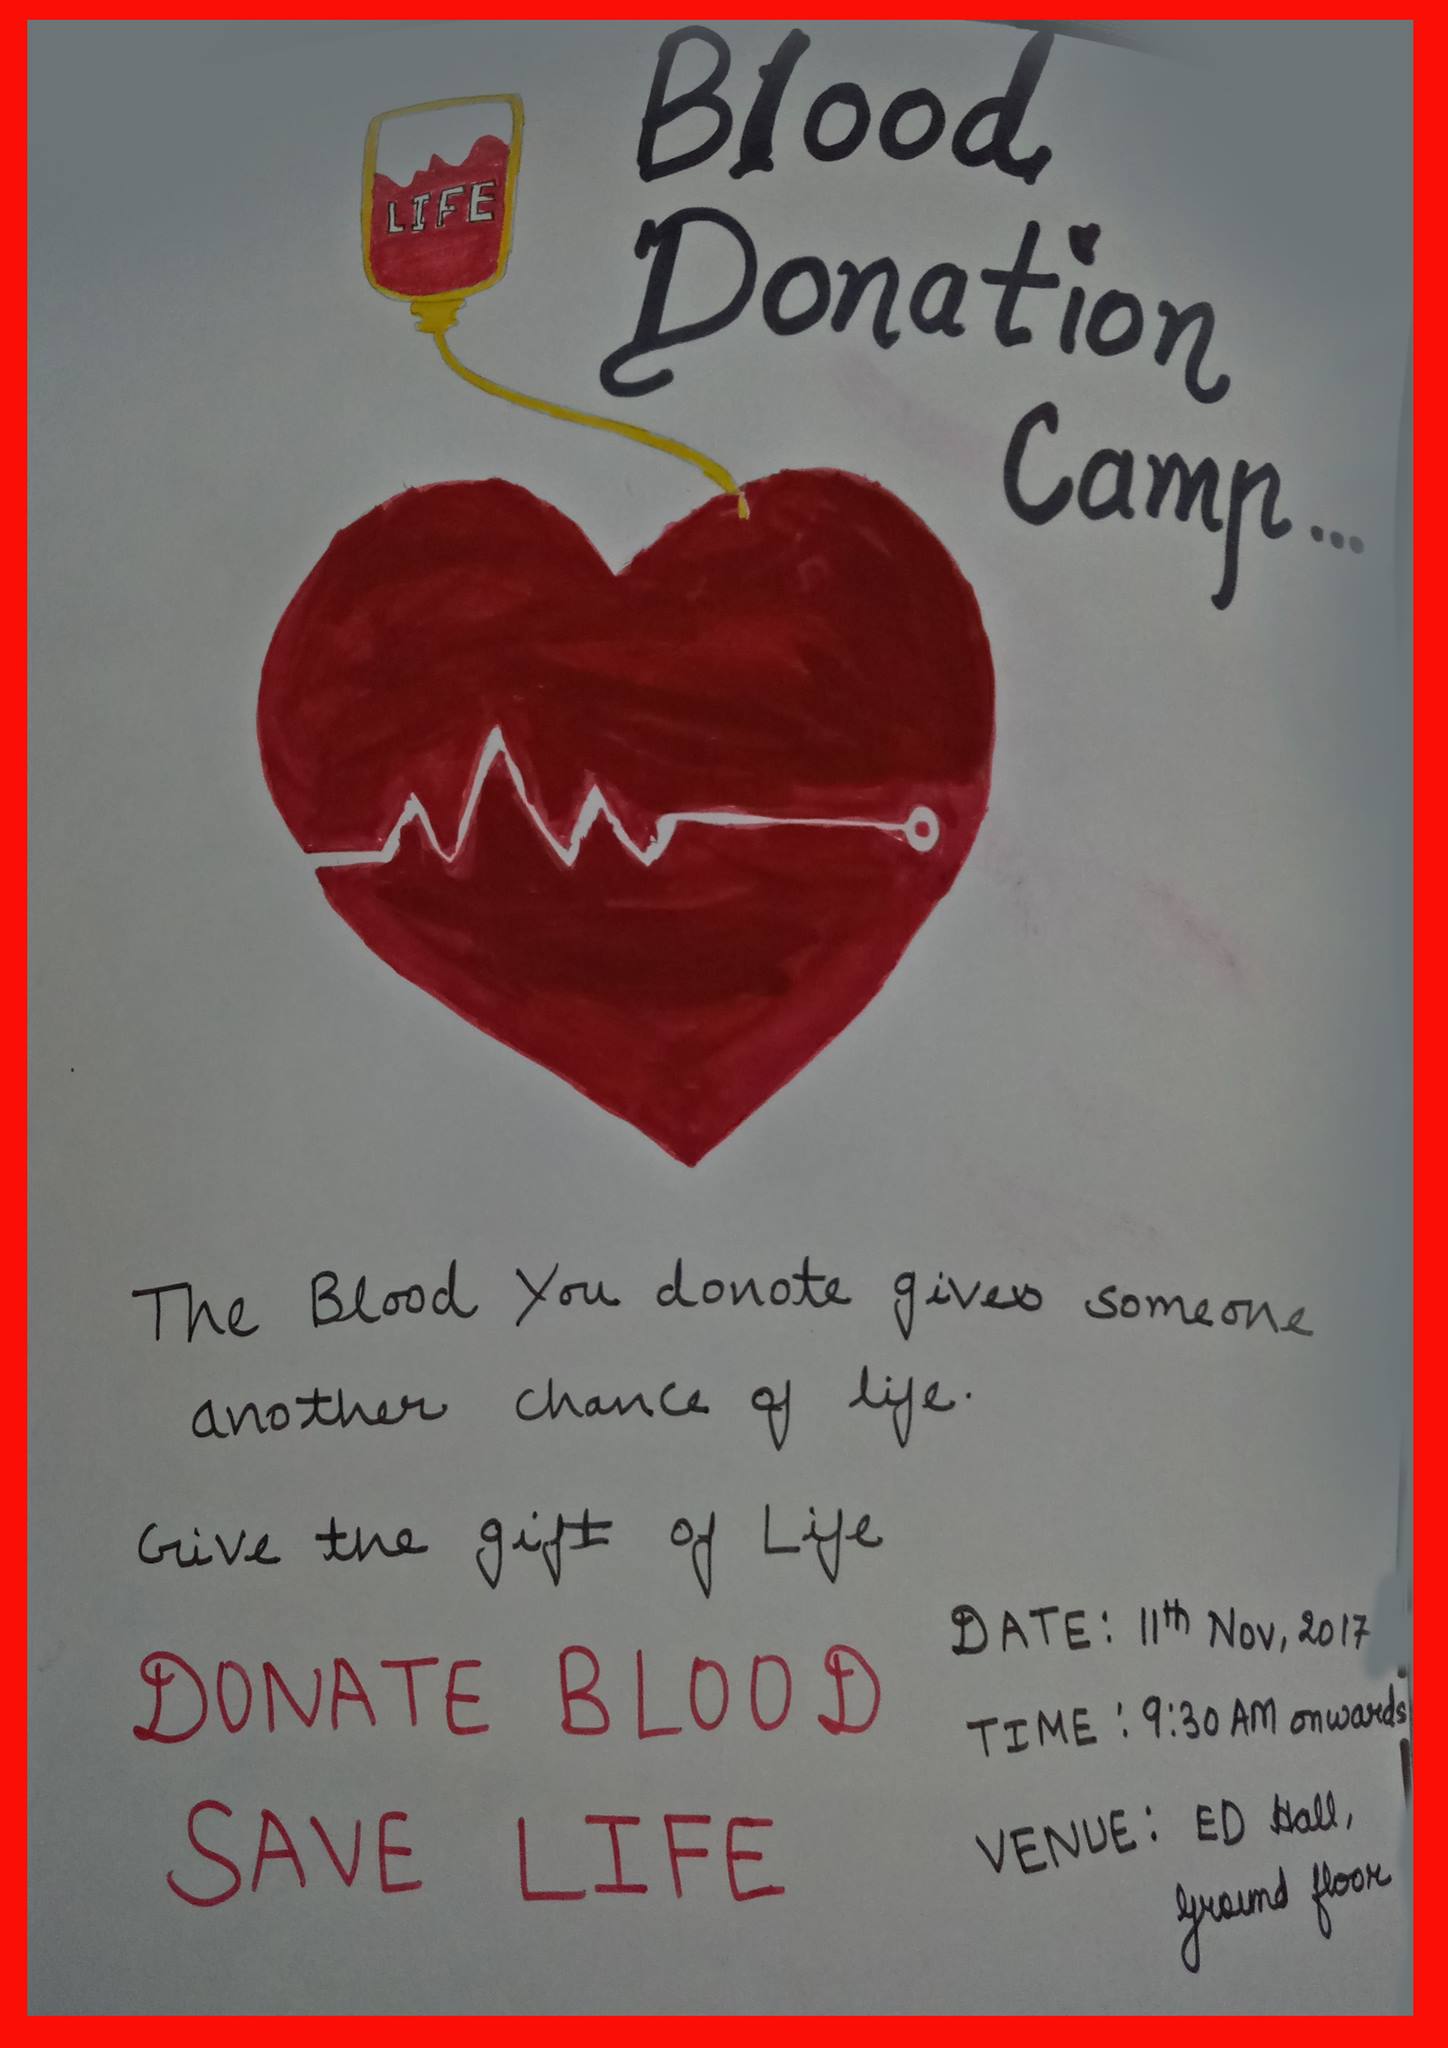 Blood
Donation
Camp...
LIFE
The Blood You donote gives someone
another chance of life.
Give the gift of Life
DONATE BLOOD
SAVE LIFE
DATE: 11th Nov, 2017
TIME: 9:30 AM onwards
VENUE: ED Hall,
ground floor